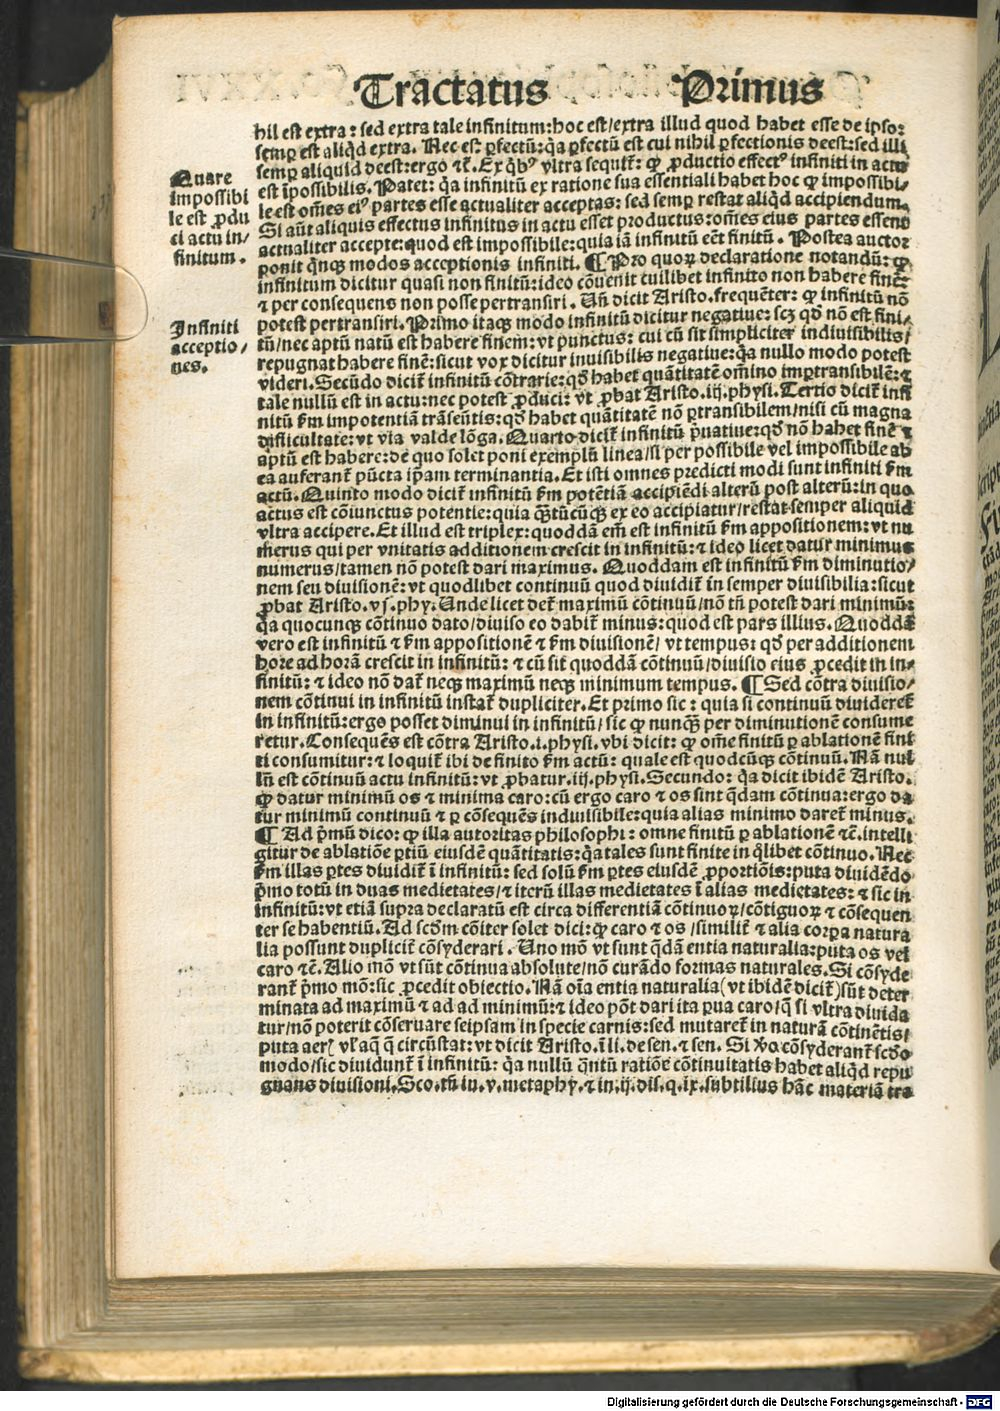 Tractatus Primus
hil est extra: sed extra tale infinitum: hoc est/extra illud quod habet esse de ipso:
semꝑ est aliq̄d extra. Nec est ꝑfectū: q̄a ꝑfectū est cui nihil ꝑfectionis deest: sed illi
semꝑ aliquid deest: ergo ⁊c̄. Ex q̄bꝰ vltra sequit᷑: ꝙ ꝓductio effectꝰ infiniti in actu
Quare
impossibi
le est ꝓdu
ci actu in/
finitum.
est īpossibilis. Patet: q̄a infinitū ex ratione sua essentiali habet hoc ꝙ impossibi/
le est om̄es eiꝰ partes esse actualiter acceptas: sed semꝑ restat aliq̄d accipiendum.
Si aūt aliquis effectus infinitus in actu esset productus: om̄es eius partes essent
actualiter accepte: quod est impossibile: quia iā infinitū eēt finitū. Postea auctor
ponit q̄nqꝫ modos acceptionis infiniti. ¶ Pro quoꝝ declaratione notandū: ꝙ
infinitum dicitur quasi non finitū: ideo cōuenit cuilibet infinito non habere finē:
⁊ per consequens non posse pertransiri. Uñ dicit Aristo. frequēter: ꝙ infinitū nō
Infiniti
acceptio/
nes.
potest pertransiri. Primo itaqꝫ modo infinitū dicitur negatiue: scꝫ qđ nō est fini/
tū/nec aptū natū est habere finem: vt punctus: cui cū sit simpliciter indiuisibilis/
repugnat habere finē: sicut vox dicitur inuisibilis negatiue: q̄a nullo modo potest
videri. Secūdo dicit᷑ infinitū cōtrarie: qđ habet quātitatē om̄ino imꝑtransibilē: ⁊
tale nullū est in actu: nec potest ꝓduci: vt ꝓbat Aristo. iij. physi. Tertio dicit᷑ infi
nitū ẜm impotentiā trāseūtis: qđ habet quātitatē nō ꝑtransibilem/nisi cū magna
difficultate: vt via valde lōga. Quarto dicit᷑ infinitū p̄uatiue: qđ nō habet finē ⁊
aptū est habere: de quo solet poni exemplū linea/si per possibile vel impossibile ab
ea auferant᷑ pūcta ip̄am terminantia. Et isti omnes predicti modi sunt infiniti ẜm
actū. Quinto modo dicit᷑ infinitū ẜm potētiā accipiēdi alterū post alterū: in quo
actus est cōiunctus potentie: quia quātūcūqꝫ ex eo accipiatur/restat semper aliquid
vltra accipere. Et illud est triplex: quoddā em̄ est infinitū ẜm appositionem: vt nu
merus qui per vnitatis additionem crescit in infinitū: ⁊ ideo licet datur minimus
numerus/tamen nō potest dari maximus. Quoddam est infinitū ẜm diminutio/
nem seu diuisionē: vt quodlibet continuū quod diuidit᷑ in semper diuisibilia: sicut
ꝓbat Aristo. vj. phy. Unde licet det᷑ maximū cōtinuū/nō tñ potest dari minimū:
q̄a quocunqꝫ cōtinuo dato/diuiso eo dabit᷑ minus: quod est pars illius. Quoddā
vero est infinitū ⁊ ẜm appositionē ⁊ ẜm diuisionē/ vt tempus: qđ per additionem
hore ad horā crescit in infinitū: ⁊ cū sit quoddā cōtinuū/diuisio eius ꝓcedit in in-
finitū: ⁊ ideo nō dat᷑ neqꝫ maximū neqꝫ minimum tempus. ¶ Sed cōtra diuisio/
nem cōtinui in infinitū instat᷑ dupliciter. Et primo sic: quia si continuū diuideret᷑
in infinitū: ergo posset diminui in infinitū/ sic ꝙ nunqꝫ̄ per diminutionē consume
retur. Consequēs est cōtra Aristo. i. physi. vbi dicit: ꝙ om̄e finitū ꝑ ablationē fini
ti consumitur: ⁊ loquit᷑ ibi de finito ẜm actū: quale est quodcūqꝫ continuū. Nā nul
lū est continuū actu infinitū: vt ꝓbatur. iij. physi. Secundo: q̄a dicit ibidē Aristo.
ꝙ datur minimū os ⁊ minima caro: cū ergo caro ⁊ os sint q̄dam cōtinua: ergo da
tur minimū continuū ⁊ ꝑ cōsequēs indiuisibile: quia alias minimo daret᷑ minus.
¶ Ad p̄mū dico: ꝙ illa autoritas philosophi: omne finitū ꝑ ablationē ⁊c̄. intelli
gitur de ablatiōe ꝑtiū eiusdē quātitatis: q̄a tales sunt finite in q̄libet cōtinuo. Nec
ẜm illas ꝑtes diuidit᷑ ī infinitū: sed solū ẜm ꝑtes eiusdē ꝓportiōis: puta diuidēdo
p̄mo totū in duas medietates/⁊ iterū illas medietates ī alias medietates: ⁊ sic in
infinitū: vt etiā supra declaratū est circa differentiā cōtinuoꝝ/cōtiguoꝝ ⁊ cōsequen
ter se habentiū. Ad scđm cōiter solet dici: ꝙ caro ⁊ os /similit᷑ ⁊ alia corꝑa natura
lia possunt duplicit᷑ cōsyderari. Uno mō vt sunt q̄dā entia naturalia: puta os vel
caro ⁊c̄. Alio mō vt sūt cōtinua absolute/nō curādo formas naturales. Si cōsyde
rant᷑ p̄mo mō: sic ꝓcedit obiectio. Nā oīa entia naturalia (vt ibidē dicit᷑) sūt deter
minata ad maximū ⁊ ad ad minimū: ⁊ ideo pōt dari ita ꝑua caro/ꝙ si vltra diuida
tur/nō poterit cōseruare seipsam in specie carnis: sed mutaret᷑ in naturā cōtinētis/
puta aeris vl' aq̄ q̄ circūstat: vt dicit Aristo. ī li. de sen. ⁊ sen. Si ꝟo cōsyderant᷑ scđo
modo/sic diuidunt᷑ ī infinitū: q̄a nullū q̄ntū ratiōe cōtinuitatis habet aliq̄d repu
gnans diuisioni. Sco. tñ in. v. metaphy. ⁊ in. ij. dis. q. ix. subtilius hāc materiā tra
Digitalisierung gefördert durch die Deutsche Forschungsgemeinschaft - DFG